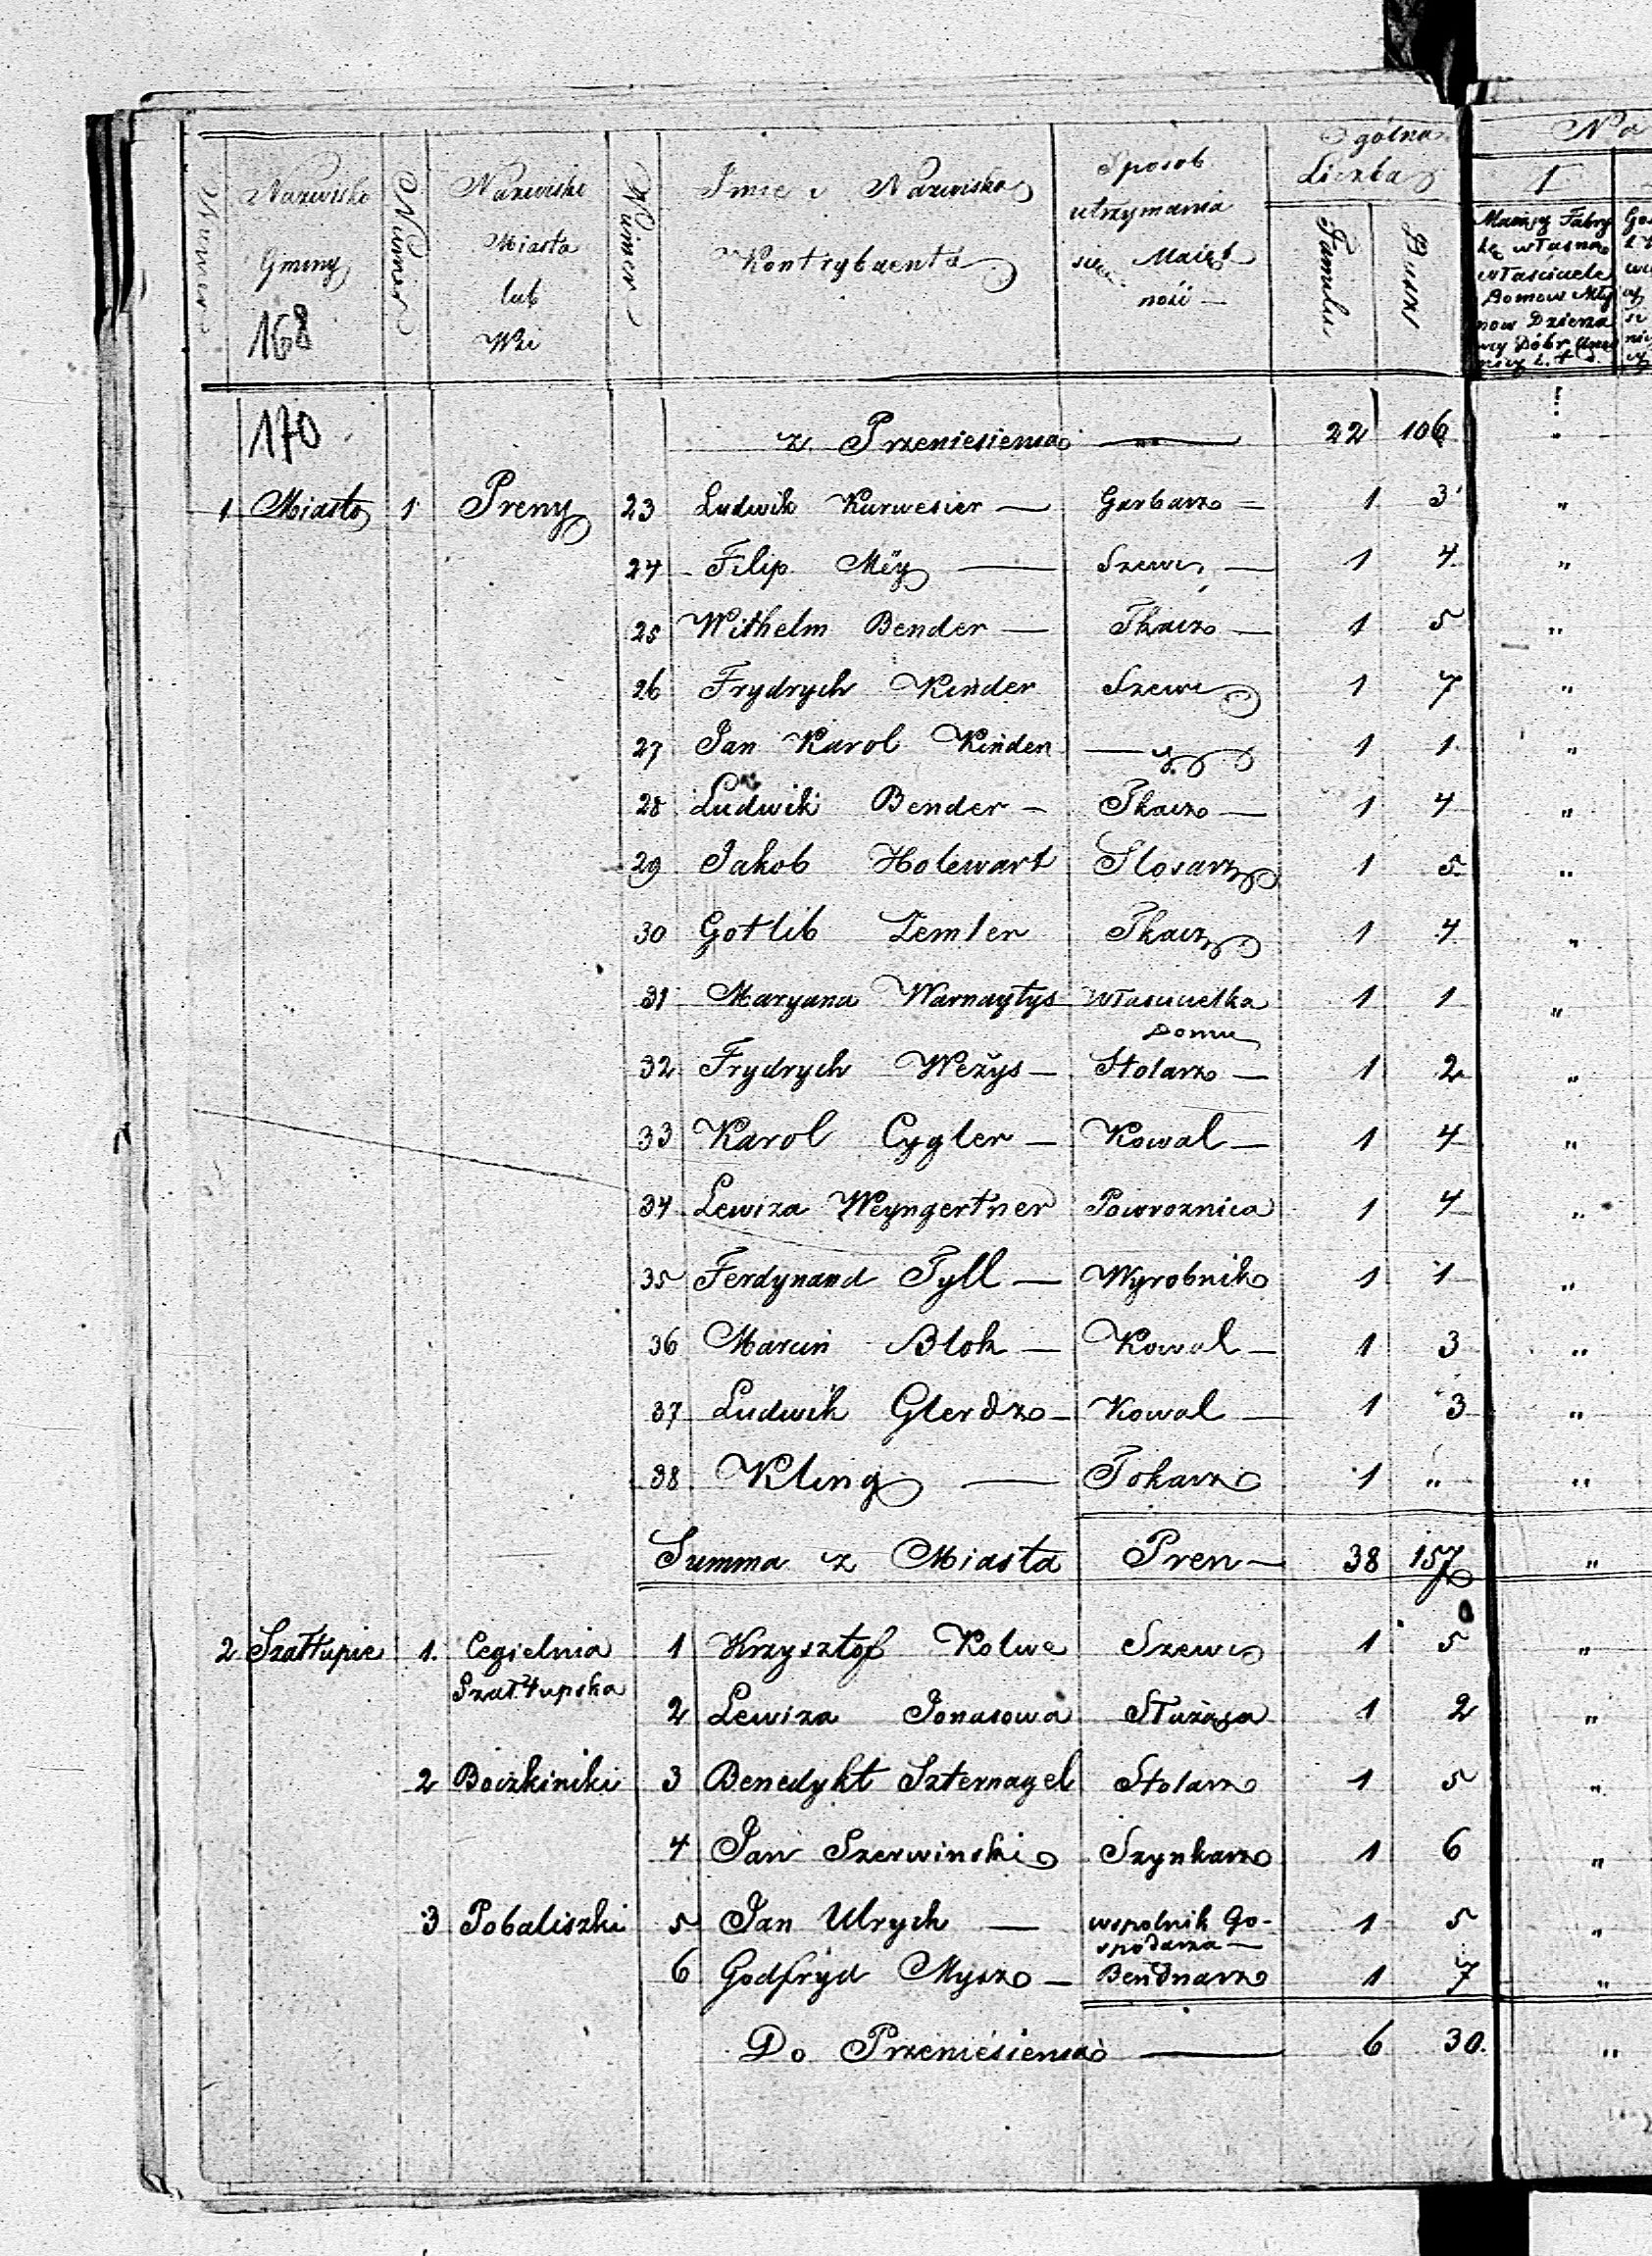 Numer Nazwisko Gminy Numer Nazwisko Miasta lub Wsi Numer Imie i Nazwisko Kontrybuenta Sposob utrzymania się Maięt ność — Ogólna Liczba Familii Dusz
168
Na
1
Maiący Fabry
kę własną
właściciele
Domow Mły
now Dzierża
wcy Dóbr
170 z Przeniesienia — 22 106 "
1 Miasto 1 Preny 23 Ludwik Kurwesier — Garbarz — 1 3 "
24 Filip Mëy — Szewc — 1 4 "
25 Wilhelm Bender — Tkacz — 1 5 "
26 Frydrych Kinder Szewc 1 7 "
27 Jan Karol Kinder — " — 1 1 "
28 Ludwik Bender — Tkacz — 1 4 "
29 Jakob Holewart Slosarz 1 5 "
30 Gotlib Zemler Tkacz 1 4 "
31 Maryana Warnaytys Właścicielka 1 1 "
Domu
32 Frydrych Weżys — Stolarz — 1 2 "
33 Karol Cygler — Kowal — 1 4 "
34 Lewiza Weyngertner Powroznica 1 4 "
35 Ferdynand Tyll — Wyrobnik 1 1 "
36 Marcin Blok — Kowal — 1 3 "
37 Ludwik Glerdz — Kowal — 1 3 "
38 Kling — Tokarz 1 " "
Summa z Miasta Pren — 38 157 "
2 Szałtupie 1. Cegielnia 1 Krzysztof Kolwe Szewc 1 5 "
Szałtupska
2 Lewiza Jonasowa Służąca 1 2 "
2 Boczkiniki 3 Benedykt Szternagel Stolarz 1 5 "
4 Jan Szerwinski Szynkarz 1 6 "
3 Pobaliszki 5 Jan Ulrych — wspolnik Go- 1 5 "
spodarza —
6 Godfryd Mysz — Bendnarz 1 7 "
Do Przeniesienia — 6 30. "